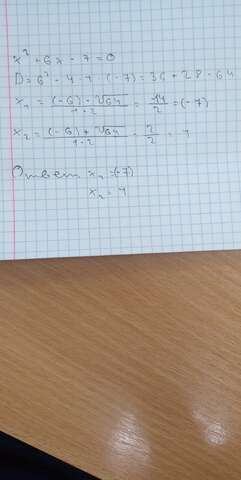 x² + 6x - 7 = 0
D = 6² - 4 · 1 · (-7) = 36 + 28 = 64
x₁ = (-6) - √64 / 1·2 = 14 / 2 = (-7)
x₂ = (-6) + √64 / 1·2 = 2 / 2 = 1
Ответ x₁ = (-7)
x₂ = 1